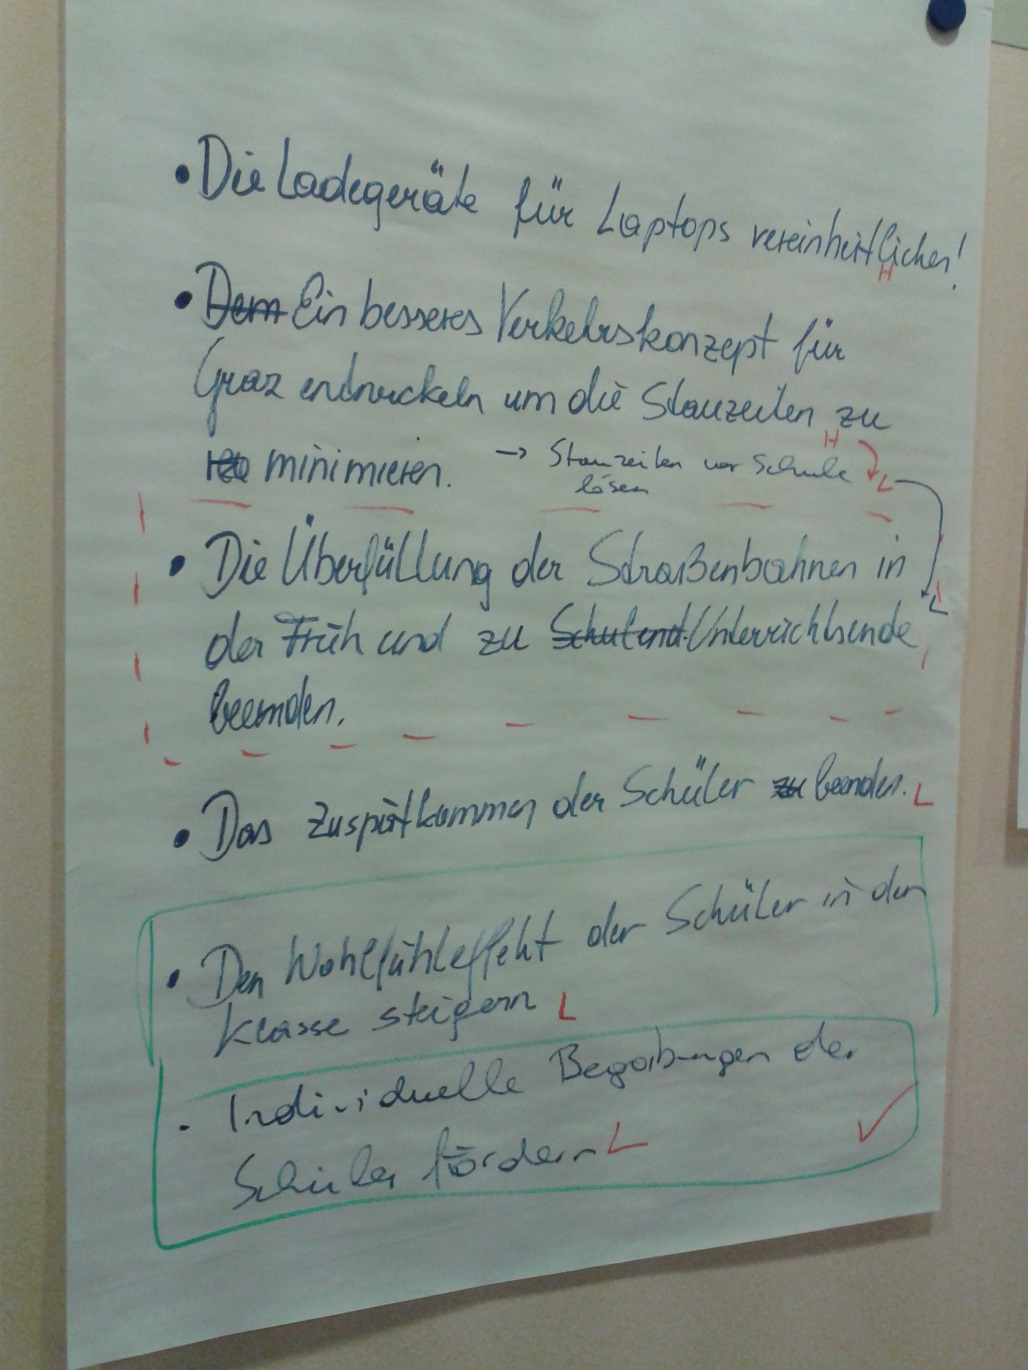 • Die Ladegeräte für Laptops vereinheitlichen!
H
• Dem Ein besseres Verkehrskonzept für
Graz entwickeln um die Stauzeiten zu
minimieren. → Stauzeiten vor Schule H L
lösen
• Die Überfüllung der Straßenbahnen in
der Früh und zu Schulend. Unterrichtsende L
beenden.
• Das Zuspätkommen der Schüler zu beenden. L
• Den Wohlfühleffekt der Schüler in der
Klasse steigern L
• Individuelle Begabungen der
Schüler fördern L ✓